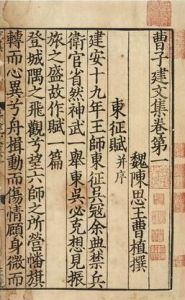 曹子建文集卷第一
魏陳思王曹植撰
東征賦并序
建安十九年王師東征吳寇余典禁兵
衛官省然神武一舉東吳必克想見振
旅之盛故作賦一篇
登城隅之飛觀兮望六師之所營幡旗
轉而心異兮舟楫動而傷情顧身微而